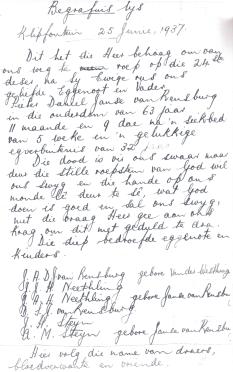 Begrafnis lys
Klipfontein 25 Junie, 1937.
Dit het die Heer behaag om van
ons weg te roep op die 24ste
deser, na Sy Ewige rus ons
geliefde Eggenoot en Vader
Daniel Janse van Rensburg
in die ouderdom van 63 jaar
11 maande en 9 dae na 'n siekbed
van 5 weke en 'n gelukkige
egverbintenis van 32 jaar
Die dood is vir ons swaar maar
deur die stille roepstem van God wil
ons swyg en die hande op ons
monde lê deur te sê, wat God
doen is goed en sal ons swyg,
met die vraag Heer gee aan ons
krag om dit met geduld te dra.
Die diep bedroefde eggenote en
kinders.
van Rensburg gebore van der Westhuizen
Neethling
Neethling gebore Janse van Rensburg
van Rensburg
Steyn
M. Steyn gebore Janse van Rensburg
Hier volg die name van draers,
bloedverwante en vriende.